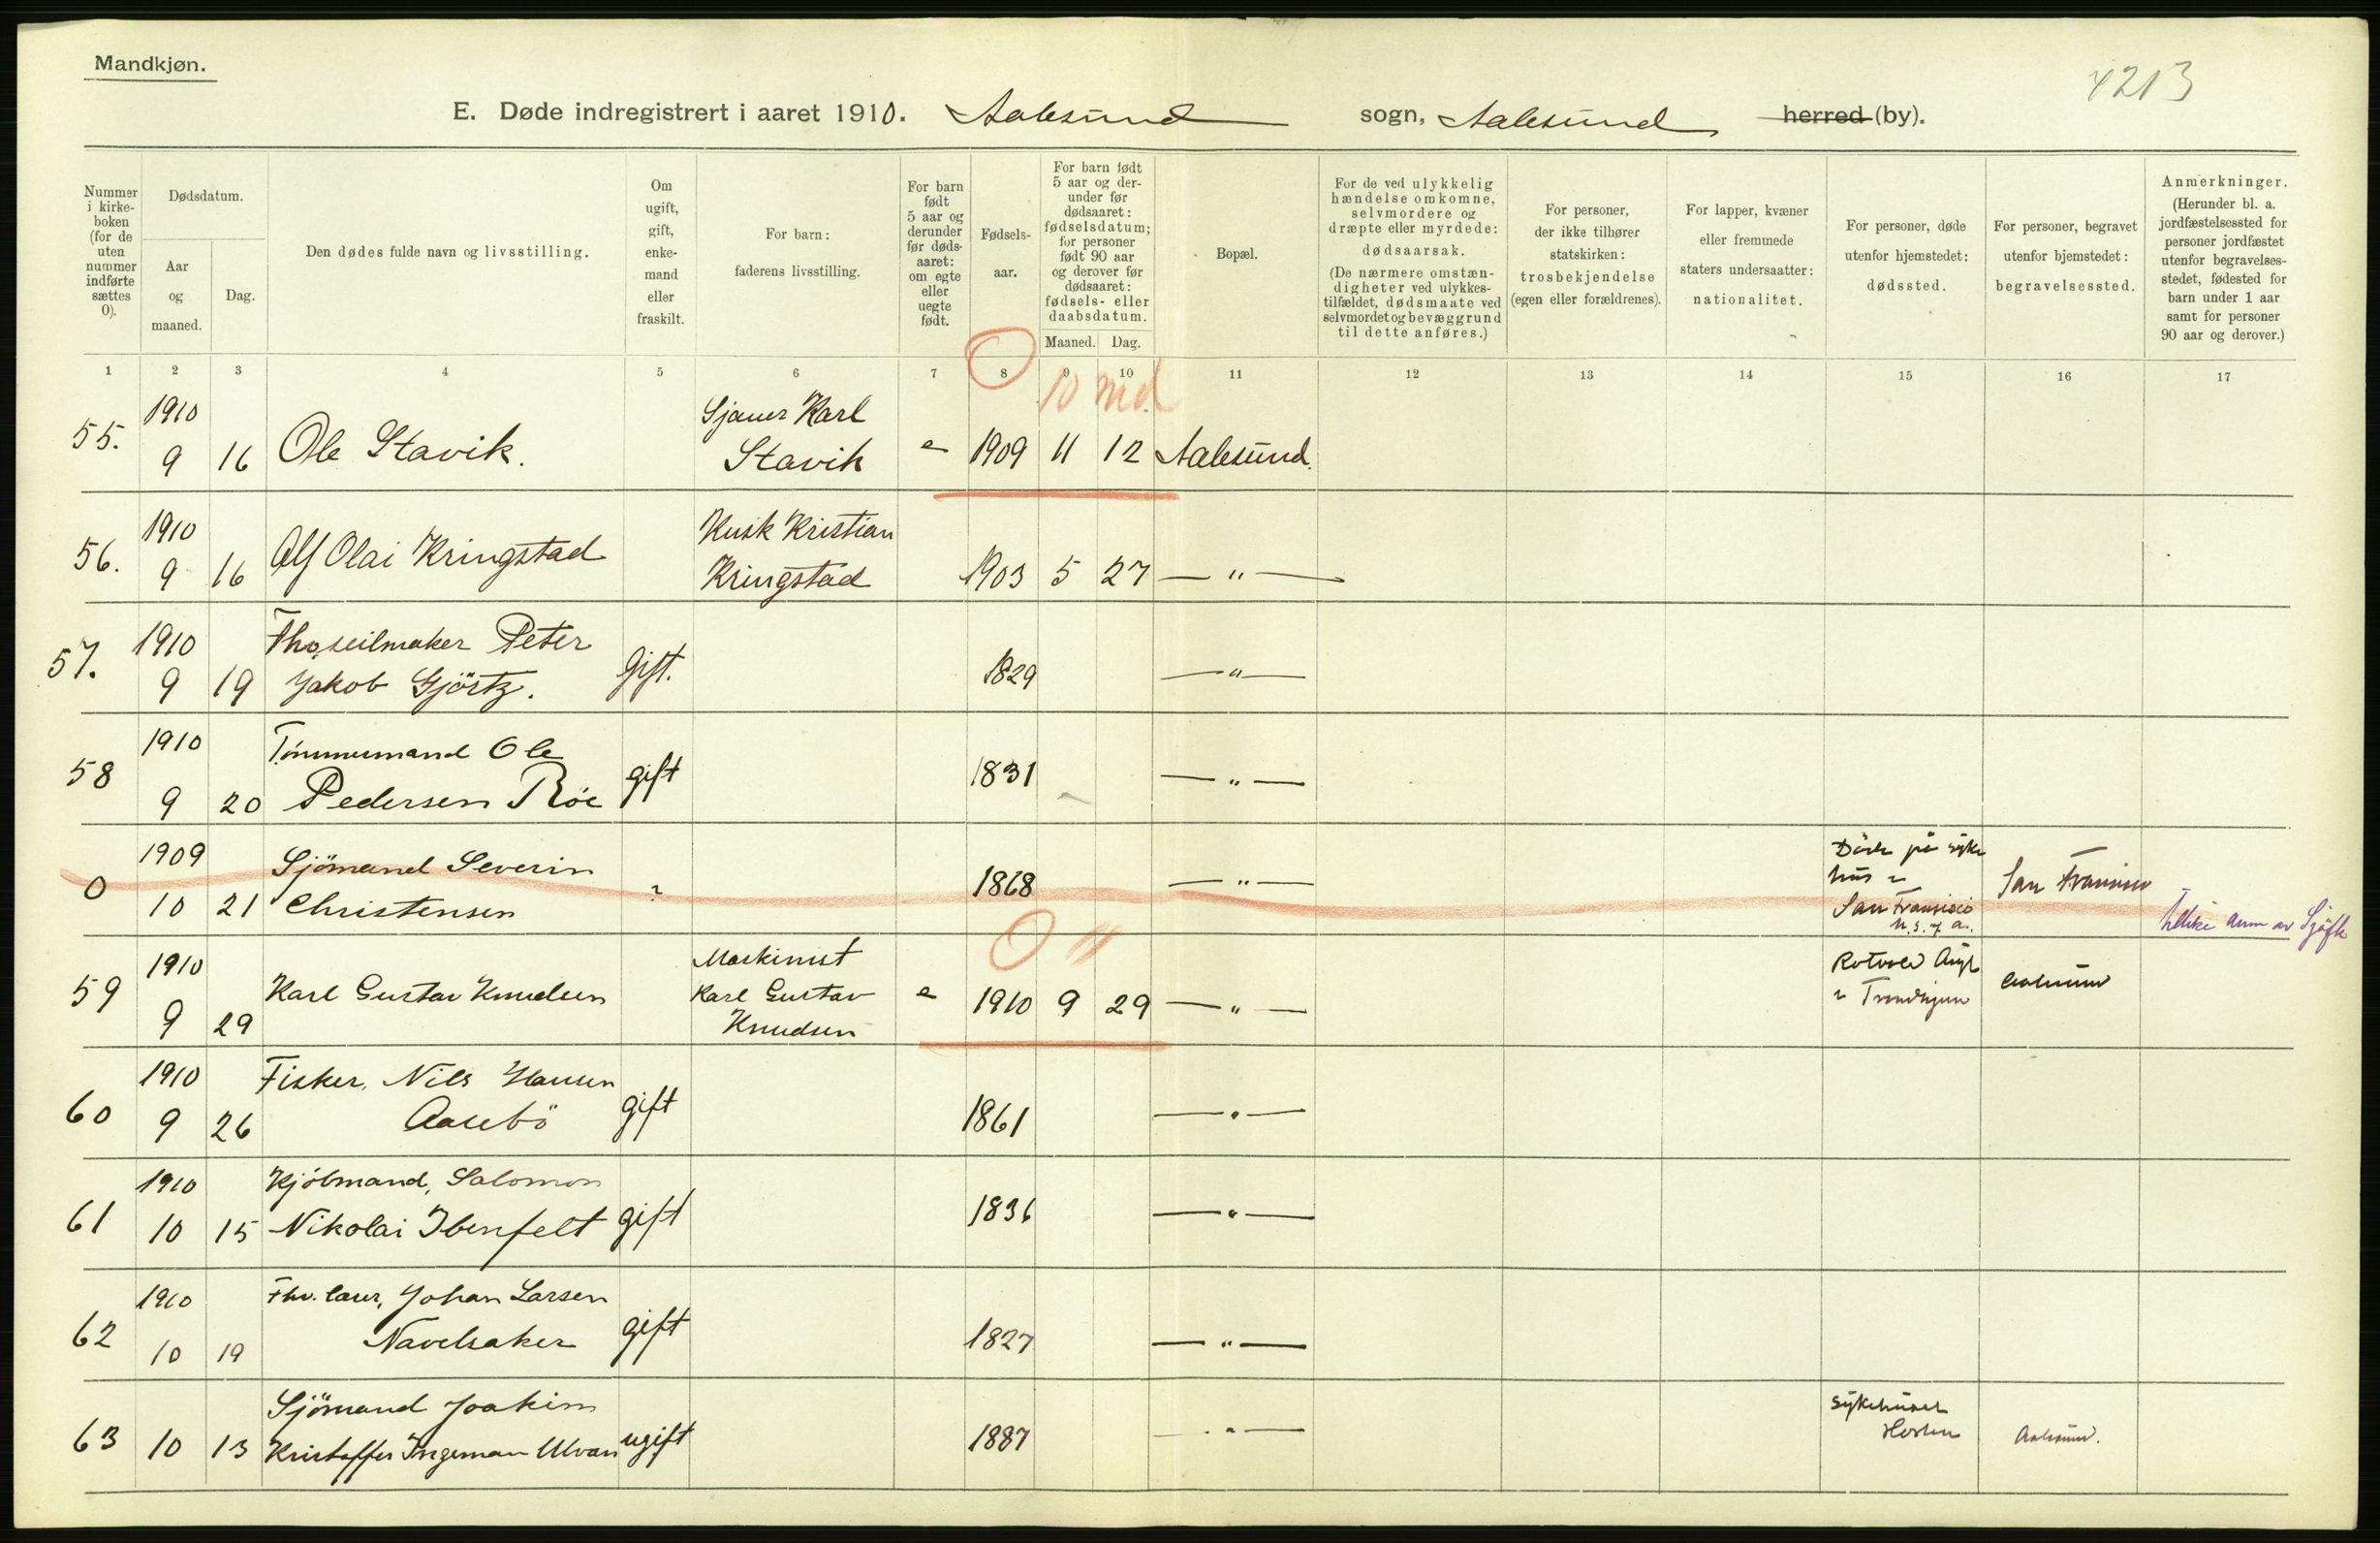 Mandkjøn.
4213
E. Døde indregistrert i aaret 1910. Aalesund sogn, Aalesund herred (by).
Nummer i kirkeboken (for de uten nummer indførte sættes 0).
Dødsdatum.
Aar og maaned.
Dag.
Den dødes fulde navn og livsstilling.
Om ugift, gift, enkemand eller fraskilt.
For barn: faderens livsstilling.
For barn født 5 aar og derunder før dødsaaret: om egte eller uegte født.
Fødselsaar.
For barn født 5 aar og derunder før dødsaaret: fødselsdatum; for personer født 90 aar og derover før dødsaaret: fødsels- eller daabsdatum.
Maaned. Dag.
Bopæl.
For de ved ulykkelig hændelse omkomne, selvmordere og dræpte eller myrdede: dødsaarsak. (De nærmere omstændigheter ved ulykkestilfældet, dødsmaate ved selvmordet og bevæggrund til dette anføres.)
For personer, der ikke tilhører statskirken: trosbekjendelse (egen eller forældrenes).
For lapper, kvæner eller fremmede staters undersaatter: nationalitet.
For personer, døde utenfor hjemstedet: dødssted.
For personer, begravet utenfor hjemstedet: begravelsessted.
Anmerkninger. (Herunder bl. a. jordfæstelsessted for personer jordfæstet utenfor begravelsesstedet, fødested for barn under 1 aar samt for personer 90 aar og derover.)
1 2 3 4 5 6 7 8 9 10 11 12 13 14 15 16 17
0 10 md
55. 1910 9 16 Ole Stavik. Sjauer Karl Stavik e 1909 11 12 Aalesund.
56. 1910 9 16 Alf Olai Kringstad Kusk Kristian Kringstad 1903 5 27 — " —
57. 1910 9 19 Fhv. seilmaker Peter Jakob Gjörtz. gift. 1829 — " —
58 1910 9 20 Tömmermand Ole Pedersen Röe gift 1831 — " —
0 1909 10 21 Sjömand Severin Christensen ? 1868 — " — på syke hus San Fransisco U.S.A. San Fransisco
0 "
59 1910 9 29 Karl Gustav Knudsen Maskinist Karl Gustav Knudsen e 1910 9 29 — " — Rotvold Asyl Trondhjem Aalesund
60 1910 9 26 Fisker, Nils Hansen Aasebö gift 1861 — " —
61 1910 10 15 Kjöbmand, Salomon Nikolai Ibenfelt gift 1836 — " —
62 1910 10 19 Fhv. Johan Larsen Navelsaker gift 1827 — " —
63 10 13 Sjömand Joakim Kristoffer Ingeman Ulvan ugift 1887 — " — Sykehuset Horten Aalesund.